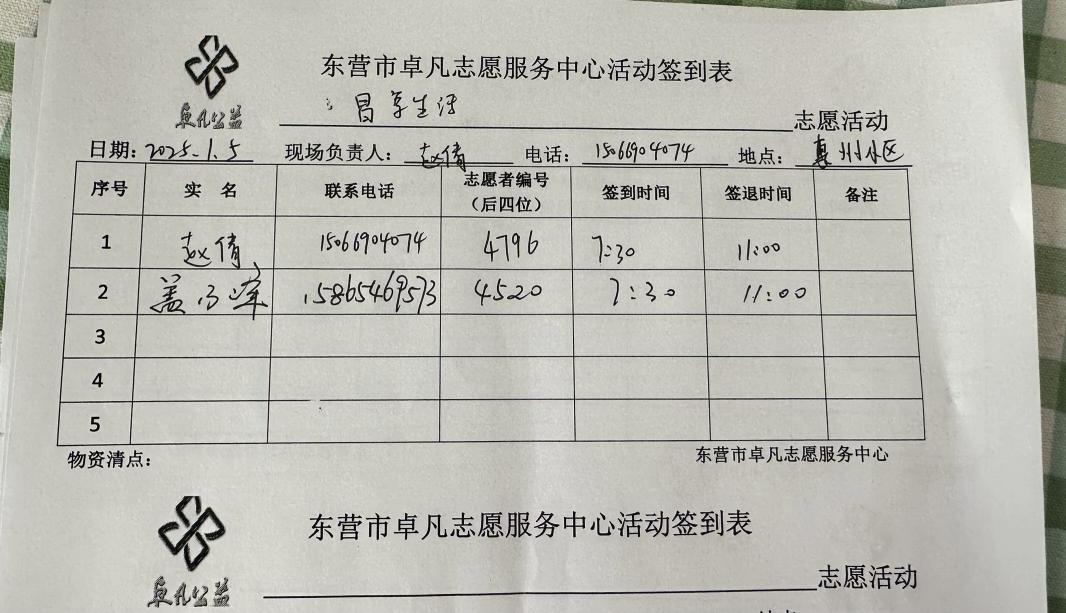 东营市卓凡志愿服务中心活动签到表
卓凡公益
昌享生活 志愿活动
日期: 2025.1.5 现场负责人: 赵倩 电话: 15066904074 地点: 惠州小区
序号 实 名 联系电话 志愿者编号（后四位） 签到时间 签退时间 备注
1 赵倩 15066904074 4796 7:30 11:00
2 盖 15865469573 4520 7:30 11:00
3
4
5
物资清点: 东营市卓凡志愿服务中心
东营市卓凡志愿服务中心活动签到表
卓凡公益
志愿活动